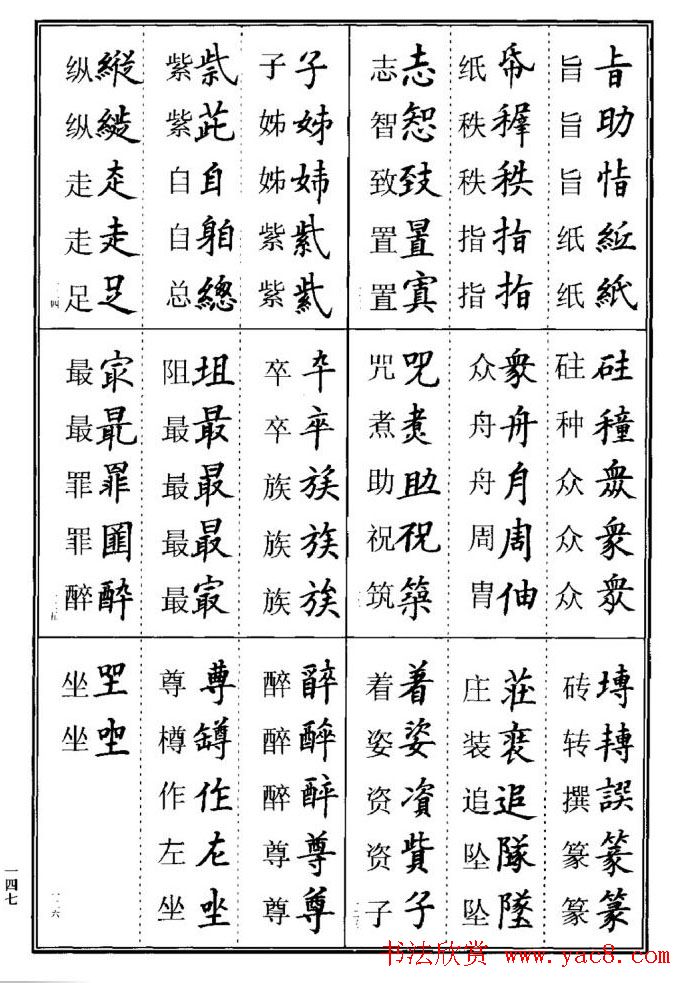 旨紙
旨旨旨纸纸
帋秩指指
纸秩秩指指
志致置
志智致置置
硅種衆
砫种众众众
衆舟周伷
众舟舟周胄
咒煑助祝築
咒煮助祝筑
塼轉譔篆篆
砖转撰篆篆
莊裝追隊墜
庄装追坠坠
着姿資貲子
着姿资资子
子姊姉紫紫
子姊姊紫紫
紫自總
紫紫自自总
縱走足
纵纵走走足
卒族族族
卒卒族族族
坦最最最
阻最最最最
最最罪醉
最最罪罪醉
醉醉尊尊
醉醉醉尊尊
尊罇作左坐
尊樽作左坐
坐坐
坐坐
一四七
书法欣赏 www.yac8.com